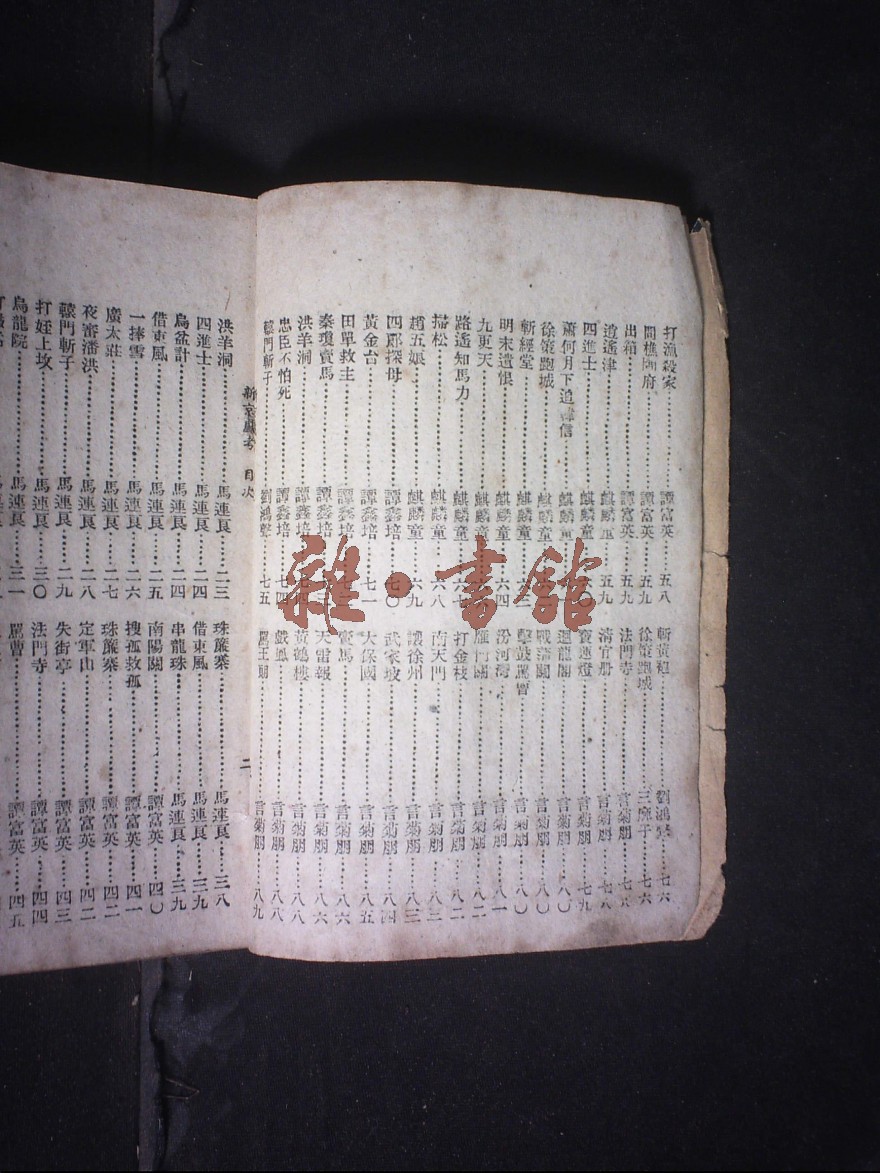 打漁殺家⋯⋯譚富英⋯⋯五八
問樵鬧府⋯⋯譚富英⋯⋯五九
出箱⋯⋯譚富英⋯⋯五九
逍遙津⋯⋯麒麟童⋯⋯五九
四進士⋯⋯麒麟童⋯⋯六〇
蕭何月下追韓信⋯⋯麒麟童
徐策跑城⋯⋯麒麟童
斬經堂⋯⋯麒麟童
明末遺恨⋯⋯麒麟童⋯⋯六四
九更天⋯⋯麒麟童
路遙知馬力⋯⋯麒麟童⋯⋯六七
掃松⋯⋯麒麟童⋯⋯六八
趙五娘⋯⋯麒麟童⋯⋯六九
四郎探母⋯⋯譚鑫培⋯⋯七〇
黃金台⋯⋯譚鑫培⋯⋯七一
田單救主⋯⋯譚鑫培
秦瓊賣馬⋯⋯譚鑫培
洪羊洞⋯⋯譚鑫培⋯⋯七四
忠臣不怕死⋯⋯譚鑫培⋯⋯七四
轅門斬子⋯⋯劉鴻聲⋯⋯七五
斬黃袍⋯⋯劉鴻聲⋯⋯七六
徐策跑城⋯⋯三麻子⋯⋯七六
法門寺⋯⋯言菊朋
清官册⋯⋯言菊朋⋯⋯七八
寶蓮燈⋯⋯言菊朋⋯⋯七九
迴龍閣⋯⋯言菊朋⋯⋯八〇
戰蒲關⋯⋯言菊朋⋯⋯八〇
擊鼓罵曹⋯⋯言菊朋⋯⋯八〇
汾河灣⋯⋯言菊朋⋯⋯八一
雁門關⋯⋯言菊朋⋯⋯八二
打金枝⋯⋯言菊朋⋯⋯八二
南天門⋯⋯言菊朋⋯⋯八三
讓徐州⋯⋯言菊朋⋯⋯八三
武家坡⋯⋯言菊朋⋯⋯八四
大保國⋯⋯言菊朋⋯⋯八五
賣馬⋯⋯言菊朋⋯⋯八六
天雷報⋯⋯言菊朋⋯⋯八六
黃鶴樓⋯⋯言菊朋⋯⋯八八
戲鳳⋯⋯言菊朋⋯⋯八八
罵王朗⋯⋯言菊朋⋯⋯八九
新京戲考 目次 二
洪羊洞⋯⋯馬連良⋯⋯二三
四進士⋯⋯馬連良⋯⋯二四
烏盆計⋯⋯馬連良⋯⋯二四
借東風⋯⋯馬連良⋯⋯二五
一捧雪⋯⋯馬連良⋯⋯二六
廣太莊⋯⋯馬連良⋯⋯二七
夜審潘洪⋯⋯馬連良⋯⋯二八
轅門斬子⋯⋯馬連良⋯⋯二九
打姪上墳⋯⋯馬連良⋯⋯三〇
烏龍院⋯⋯馬連良⋯⋯三一
珠簾寨⋯⋯馬連良⋯⋯三八
借東風⋯⋯馬連良⋯⋯三九
串龍珠⋯⋯馬連良⋯⋯三九
南陽關⋯⋯譚富英⋯⋯四〇
搜孤救孤⋯⋯譚富英⋯⋯四一
珠簾寨⋯⋯譚富英⋯⋯四二
定軍山⋯⋯譚富英⋯⋯四二
失街亭⋯⋯譚富英⋯⋯四三
法門寺⋯⋯譚富英⋯⋯四四
罵曹⋯⋯譚富英⋯⋯四五
雜·書館